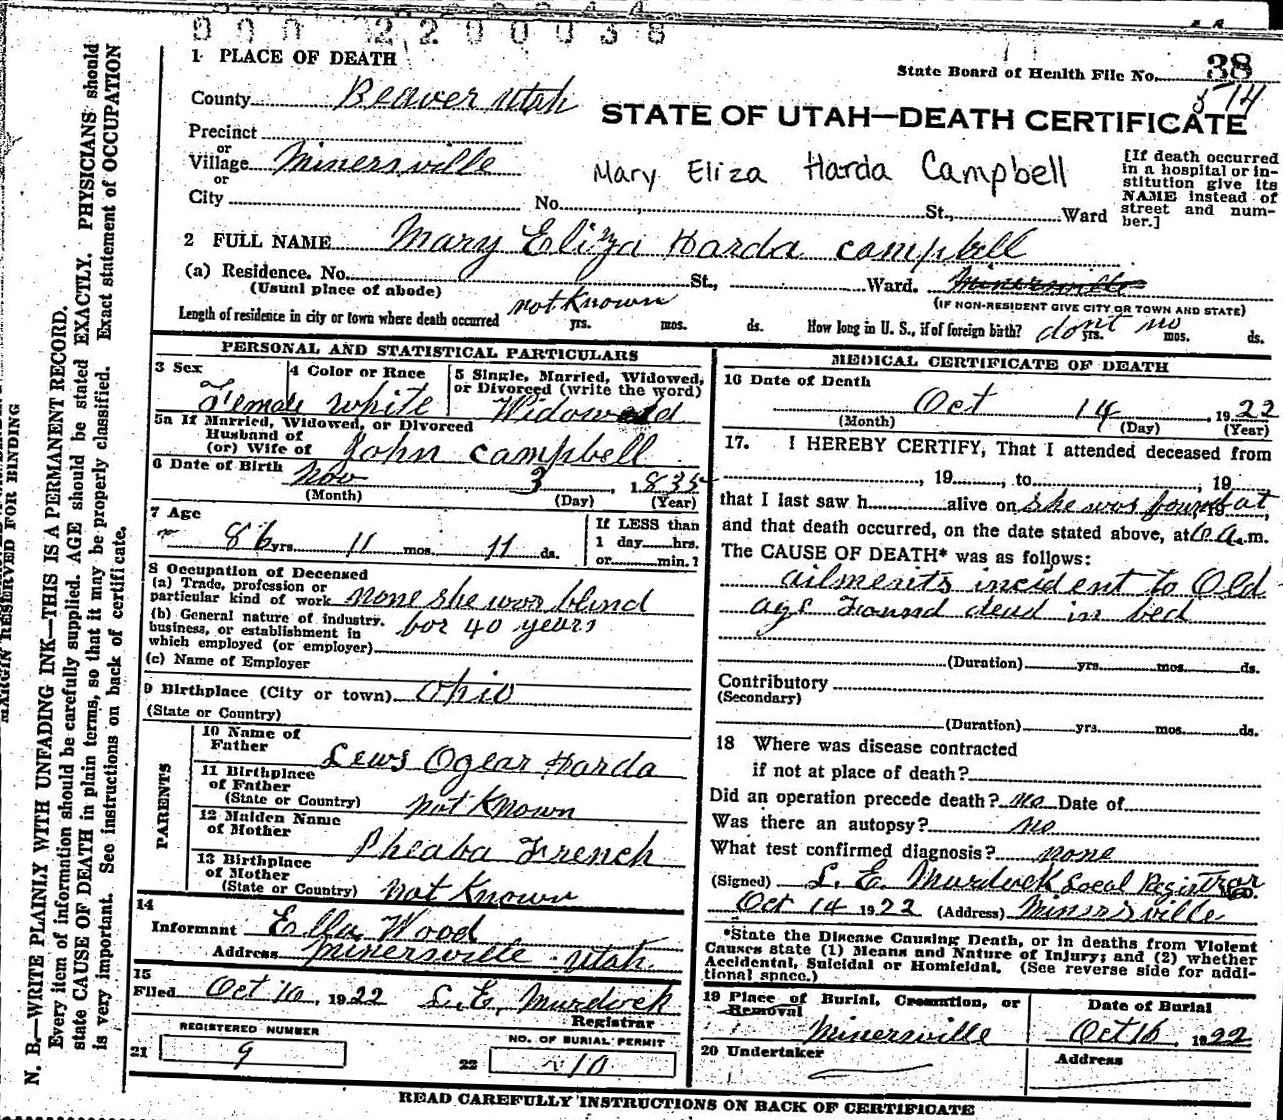 900 2200038
1 PLACE OF DEATH
State Board of Health File No. 38
574
County Beaver Utah
STATE OF UTAH—DEATH CERTIFICATE
Precinct
or
Village Minersville
or
City No. St., Ward
Mary Eliza Harda Campbell
[If death occurred
in a hospital or in-
stitution give its
NAME instead of
street and num-
ber.]
2 FULL NAME Mary Eliza Harda Campbell
(a) Residence. No. St., Ward. Minersville
(Usual place of abode)
(IF NON-RESIDENT GIVE CITY OR TOWN AND STATE)
Length of residence in city or town where death occurred not Known yrs. mos. ds. How long in U. S., if of foreign birth? dont no yrs. mos. ds.
PERSONAL AND STATISTICAL PARTICULARS
3 Sex Female
4 Color or Race white
5 Single, Married, Widowed,
or Divorced (write the word)
Widowed
5a If Married, Widowed, or Divorced
Husband of
(or) Wife of John Campbell
6 Date of Birth Nov 3, 1835
(Month) (Day) (Year)
7 Age
86 yrs. 11 mos. 11 ds.
If LESS than
1 day hrs.
or min.?
8 Occupation of Deceased
(a) Trade, profession or
particular kind of work none she was blind
(b) General nature of industry, for 40 years
business, or establishment in
which employed (or employer)
(c) Name of Employer
9 Birthplace (City or town) Ohio
(State or Country)
PARENTS
10 Name of
Father Lews Ogear Harda
11 Birthplace
of Father
(State or Country) not Known
12 Maiden Name
of Mother Pheaba French
13 Birthplace
of Mother
(State or Country) not Known
14
Informant Ella Wood
Address Minersville Utah.
15
Filed Oct 16, 1922 L. E. Murdock
Registrar
REGISTERED NUMBER
21 9
NO. OF BURIAL PERMIT
22 10
MEDICAL CERTIFICATE OF DEATH
16 Date of Death
Oct 14, 1922
(Month) (Day) (Year)
17. I HEREBY CERTIFY, That I attended deceased from
, 19, to, 19
that I last saw h alive on she was found at, 19,
and that death occurred, on the date stated above, at 6 a. m.
The CAUSE OF DEATH* was as follows:
ailments incident to Old
age Found dead in bed
(Duration) yrs. mos. ds.
Contributory
(Secondary)
(Duration) yrs. mos. ds.
18 Where was disease contracted
if not at place of death?
Did an operation precede death? no Date of
Was there an autopsy? no
What test confirmed diagnosis? none
(Signed) L. E. Murdock Local Registrar
Oct 14 1922 (Address) Minersville
*State the Disease Causing Death, or in deaths from Violent
Causes state (1) Means and Nature of Injury; and (2) whether
Accidental, Suicidal or Homicidal. (See reverse side for addi-
tional space.)
19 Place of Burial, Cremation, or
Removal
Minersville
Date of Burial
Oct 16, 1922
20 Undertaker
Address
READ CAREFULLY INSTRUCTIONS ON BACK OF CERTIFICATE
MARGIN RESERVED FOR BINDING
N. B.—WRITE PLAINLY WITH UNFADING INK—THIS IS A PERMANENT RECORD.
Every item of information should be carefully supplied. AGE should be stated EXACTLY. PHYSICIANS should
state CAUSE OF DEATH in plain terms, so that it may be properly classified. Exact statement of OCCUPATION
is very important. See instructions on back of certificate.